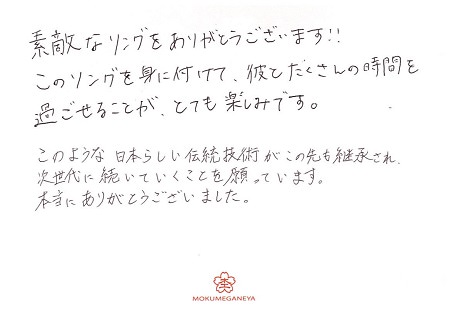 素敵なリングをありがとうございます!!
このリングを身に付けて、彼とたくさんの時間を
過ごせることが、とても楽しみです。
このような日本らしい伝統技術がこの先も継承され、
次世代に続いていくことを願っています。
本当にありがとうございました。
MOKUMEGANEYA